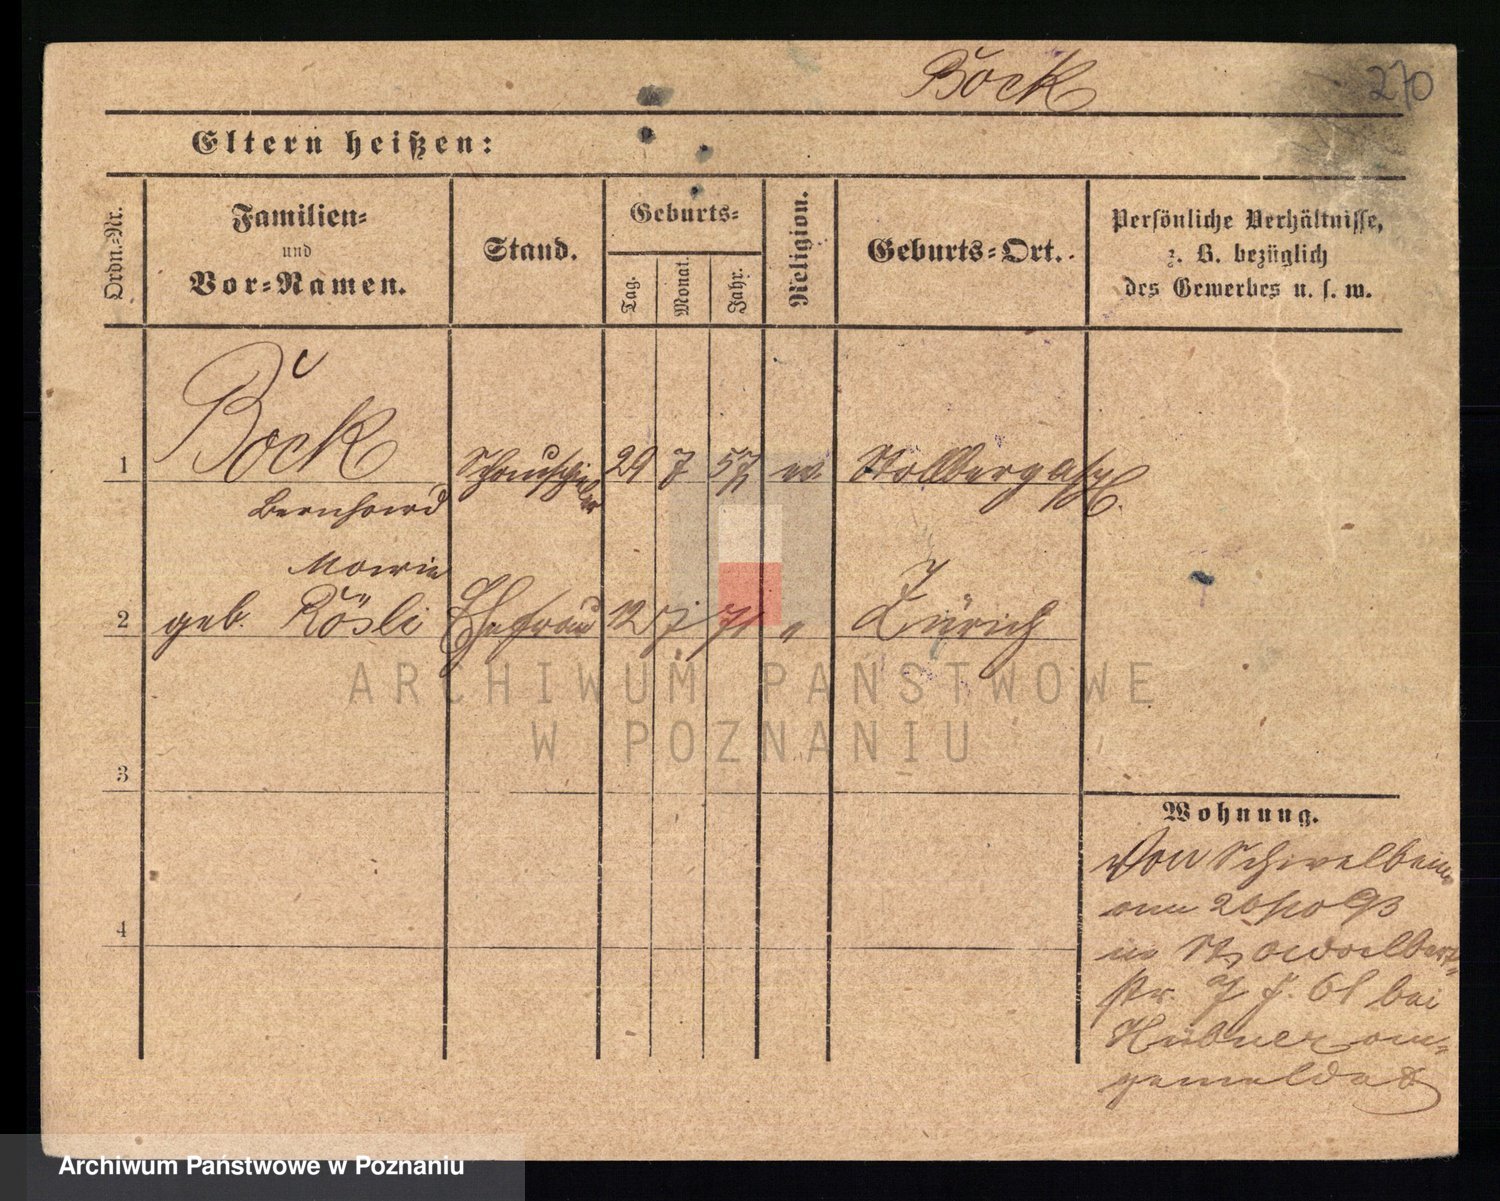 Bock
270
Eltern heißen:
Ordn.-Nr.
Familien-
und
Vor-Namen.
Stand.
Geburts-
Tag.
Monat.
Jahr.
Religion.
Geburts-Ort.
Persönliche Verhältnisse,
z. B. bezüglich
des Gewerbes u. s. w.
1
Bock
Bernhard
Schauspieler
29 7 57
Stollberg
2
Marie
geb. Rösli
Ehefrau
12 7 71
"
Zürich
3
4
Wohnung.
Von Schivelbein
am 26/10 93
in St.
str. 61 bei
Hübner an-
gemeldet
ARCHIWUM PAŃSTWOWE
W POZNANIU
Archiwum Państwowe w Poznaniu